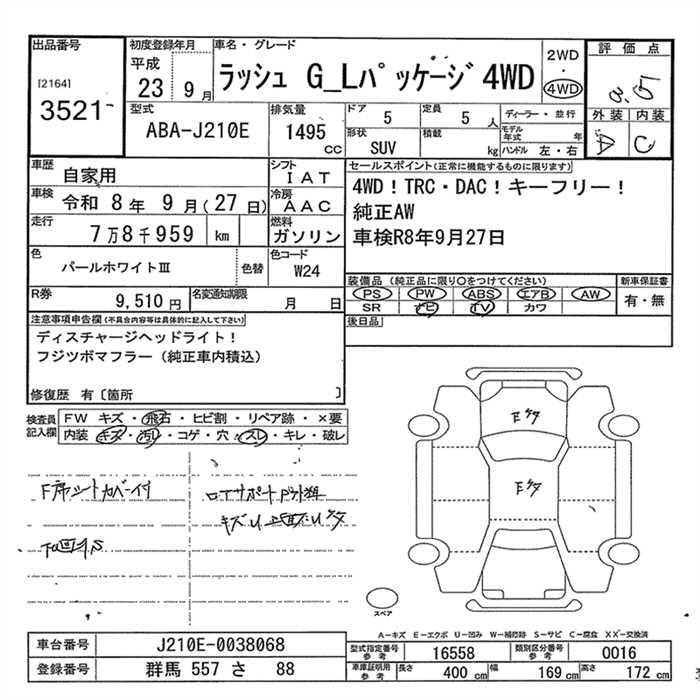 出品番号
[2164]
3521
初度登録年月
平成
23 9月
車名・グレード
ラッシュ G_Lパッケージ 4WD
2WD
・
4WD
評価点
外装 内装
A C
型式
ABA-J210E
排気量
1495
cc
ドア
5
定員
5 人
形状
SUV
積載
kg
ディーラー・並行
モデル年式 年
ハンドル 左・右
車歴
自家用
シフト
IAT
車検
令和 8年 9月(27日)
冷房
AAC
走行
7万8千959 km
燃料
ガソリン
色
パールホワイトⅢ
色替
色コード
W24
R券
9,510円
名変通知期限
月 日
セールスポイント(正常に機能するものに限ります)
4WD!TRC・DAC!キーフリー!
純正AW
車検R8年9月27日
装備品(純正品に限り〇をつけてください)
PS PW ABS エアB AW
SR ナビ TV カワ
新車保証書
有・無
後日品
注意事項申告欄(不具合内容等は具体的に記入して下さい)
ディスチャージヘッドライト!
フジツボマフラー(純正車内積込)
修復歴 有〔箇所 〕
検査員
記入欄
FW キズ・飛石・ヒビ割・リペア跡・×要
内装 キズ・汚レ・コゲ・穴・スレ・キレ・破レ
スペア
A-キズ E-エクボ U-凹み W-補修跡 S-サビ C-腐食 XX-交換済
車台番号
J210E-0038068
登録番号
群馬 557 さ 88
型式指定番号
参考
16558
類別区分番号
参考
0016
車庫証明用
参考
長さ
400 cm
幅
169 cm
高さ
172 cm